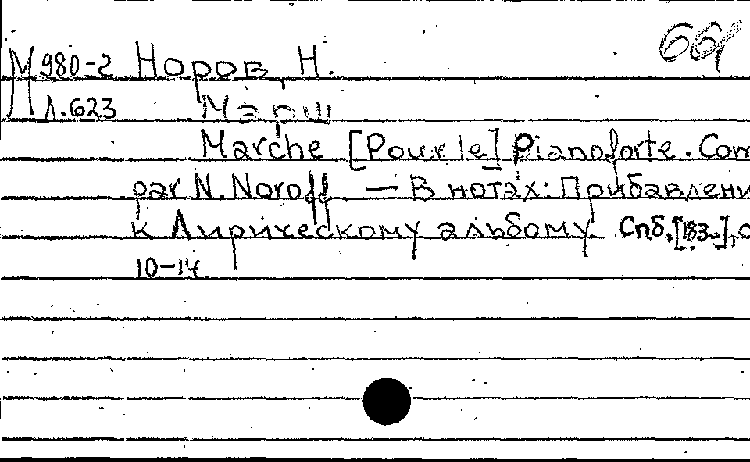 661
М 980-2 Норов, Н.
Л.623 Марш
Marche [Pour le] Pianoforte. Com
par N. Noroff — В нотах: Прибавлени
к Лирическому альбому. Спб, [183-], с
10-14